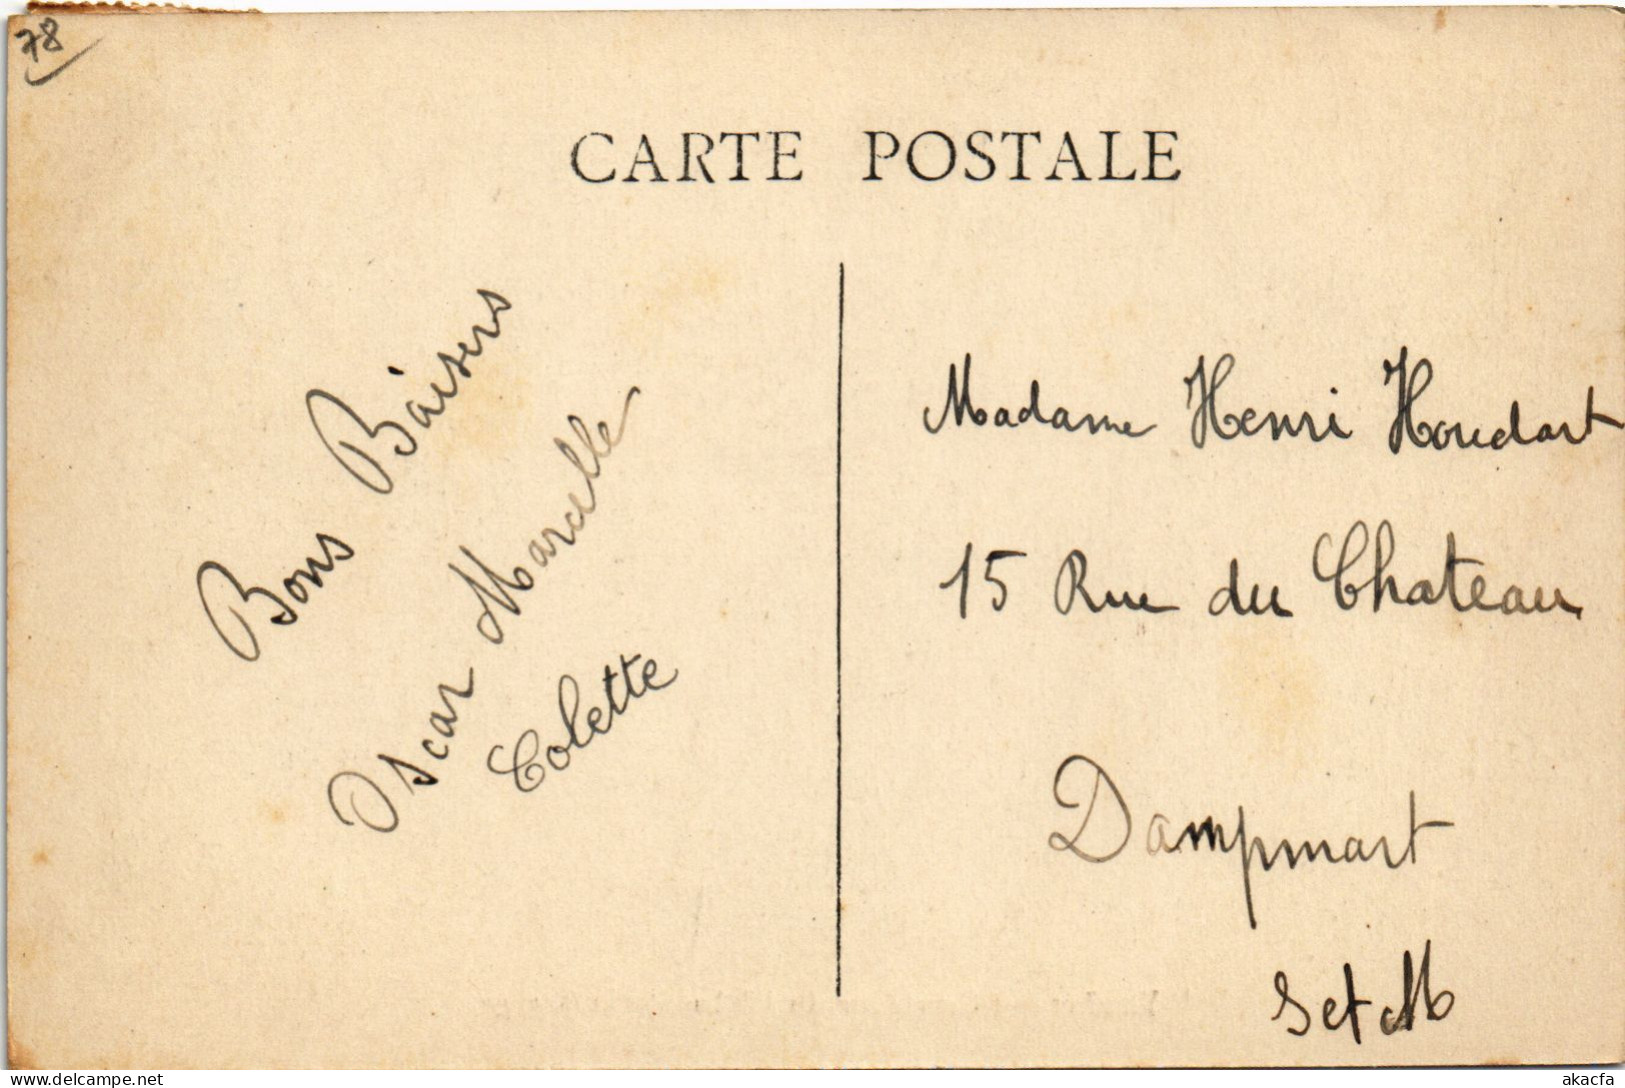 78
CARTE POSTALE
Bons Baisers
Oscar Marcelle
Colette
Madame Henri Houdart
15 Rue du Chateau
Dampmart
S et M
akacfa-delcampe.net
akacfa